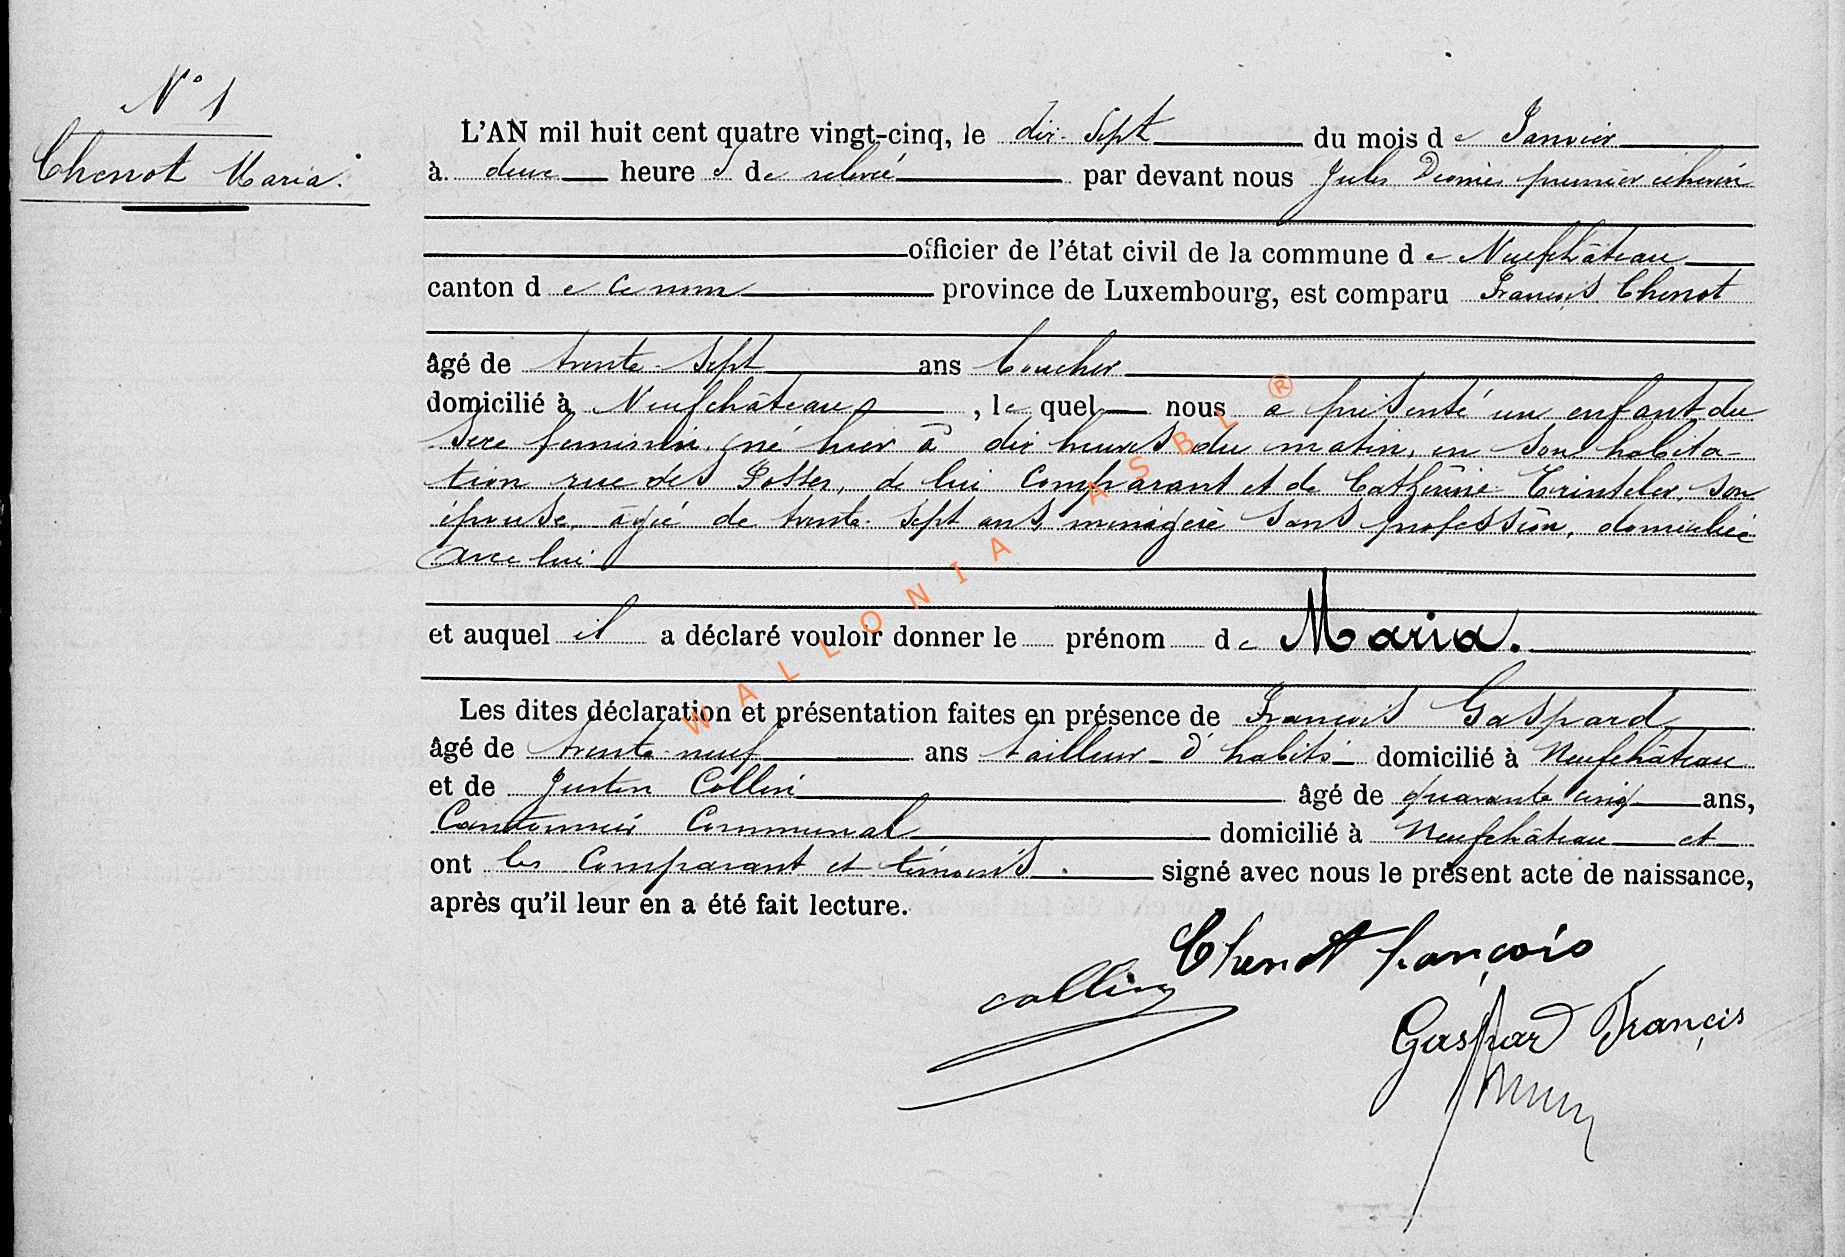 N° 1
Chenot Maria.
L'AN mil huit cent quatre vingt-cinq, le dix-sept du mois de Janvier
à deux heures de relevée par devant nous Jules premier échevin
officier de l'état civil de la commune de Neufchâteau
canton de ce nom province de Luxembourg, est comparu François Chenot
âgé de trente-sept ans boucher
domicilié à Neufchâteau, lequel nous a présenté un enfant du
sexe feminin, né hier à dix heures du matin, en son habita-
tion rue des Fosses, de lui comparant et de Cathérine son
épouse, agée de trente-sept ans, menagère sans profession, domiciliée
avec lui
et auquel il a déclaré vouloir donner le prénom de Maria.
Les dites déclaration et présentation faites en présence de François Gaspard
âgé de trente-neuf ans tailleur d'habits domicilié à Neufchâteau
et de Justin Collin âgé de quarante cinq ans,
Cantonnier Communal domicilié à Neufchâteau et
ont les comparant et témoins signé avec nous le présent acte de naissance,
après qu'il leur en a été fait lecture.
Chenot françois
collin
Gaspard François
WALLONIA ASBL ®